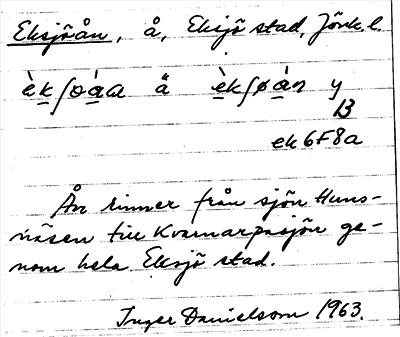 Eksjöån, å, Eksjö stad, Jönk. l.
èkʃoàa ä èkʃøàn y
B
ek6F8a
Ån rinner från sjön Huns-
näsen till Kvarnarpasjön ge-
nom hela Eksjö stad.
Inger Danielsson 1963.